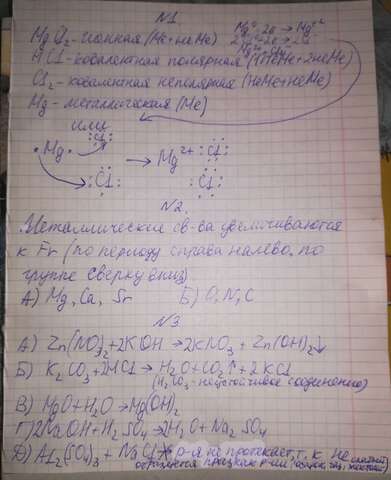 N1
MgCl₂ - ионная (Me + неMe)
Mg⁰ - 2e → Mg⁺²
HCl - ковалентная полярная
Cl₂ - ковалентная неполярная (неMe + неMe)
Mg - металлическая (Me)
или
• Mg • → Mg²⁺
N2
Металлические св-ва увеличиваются
к Fr (по периоду справа налево, по
группе сверху вниз)
А) Mg, Ca, Sr Б) O, N, C
N3
А) Zn(NO₃)₂ + 2KOH → 2KNO₃ + Zn(OH)₂↓
Б) K₂CO₃ + 2HCl → H₂O + CO₂↑ + 2KCl
(H₂CO₃ - неустойчивое соединение)
В) MgO + H₂O → Mg(OH)₂
Г) 2NaOH + H₂SO₄ → 2H₂O + Na₂SO₄
Д) Al₂(SO₄)₃ + NaCl р-я не протекает, т. к не
образуется (осадок, газ,